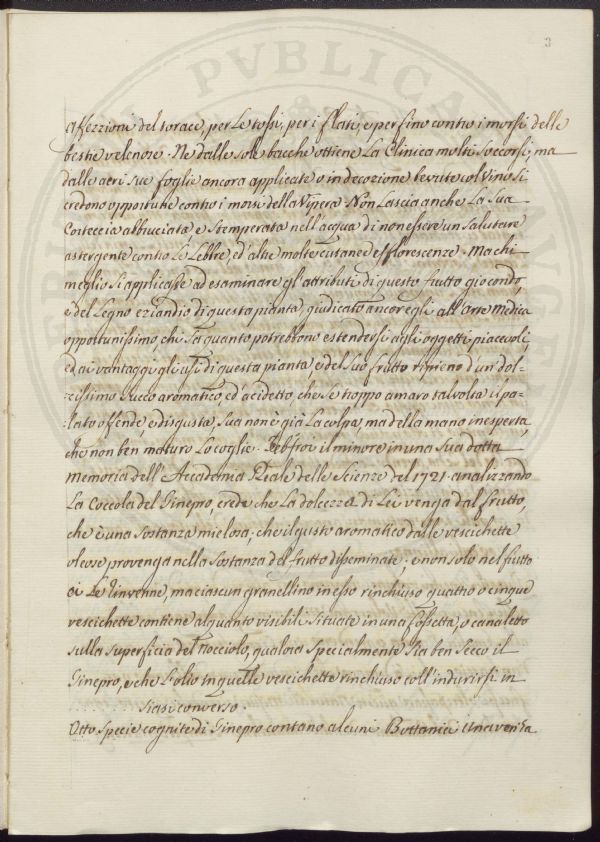 3
affezzione del torace, per le tossi, per i flati, e perfino contro i morsi delle
bestie velenose. Ne dalle sole bacche ottiene La Clinica molti soccorsi, ma
dalle aeri sue foglie ancora applicate o in decozione bevute col Vino si
credono opportune contro i morsi della Vipera. Non Lascia anche La sua
Corteccia abbruciata e stemperata nell'acqua di non essere un salutare
astergente contro Le Lebbre, ed altre molte cutanee efflorescenze. Ma chi
meglio si applicasse ad esaminare gl'attributi di questo frutto giocondo,
e del Legno eziandio di questa pianta, giudicato ancor egli all'Arte Medica
opportunissimo, chi sa quanto potrebbono estendersi agli oggetti piacevoli
ed ai vantaggi gli usi di questa pianta, e del suo frutto ripieno d'un dol-
cissimo succo aromatico, ed acidetto, che se troppo amaro talvolta il pa-
lato offende, e disgusta, sua non è già La colpa, ma della mano inesperta,
che non ben maturo Lo coglie. il minore in una sua dotta
Memoria dell'Accademia Reale delle Scienze del 1721 analizzando
La Coccola del Ginepro, crede che La dolcezza di Lei venga dal frutto,
che è una sostanza mielosa, che il gusto aromatico dalle vescichette
oleose provenga nella sostanza del frutto disseminate, e non solo nel frutto
ei Le rinvenne, ma ciascun granellino in esso rinchiuso quattro o cinque
vescichette contiene alquanto visibili situate in una fossetta, o canaletto
sulla superficia del nocciolo, qualora specialmente sia ben secco il
Ginepro, e che L'olio in quelle vescichette rinchiuso coll'indurirsi in
siasi converso.
Otto specie cognite di Ginepro contano alcuni Bottanici
PVBLICA